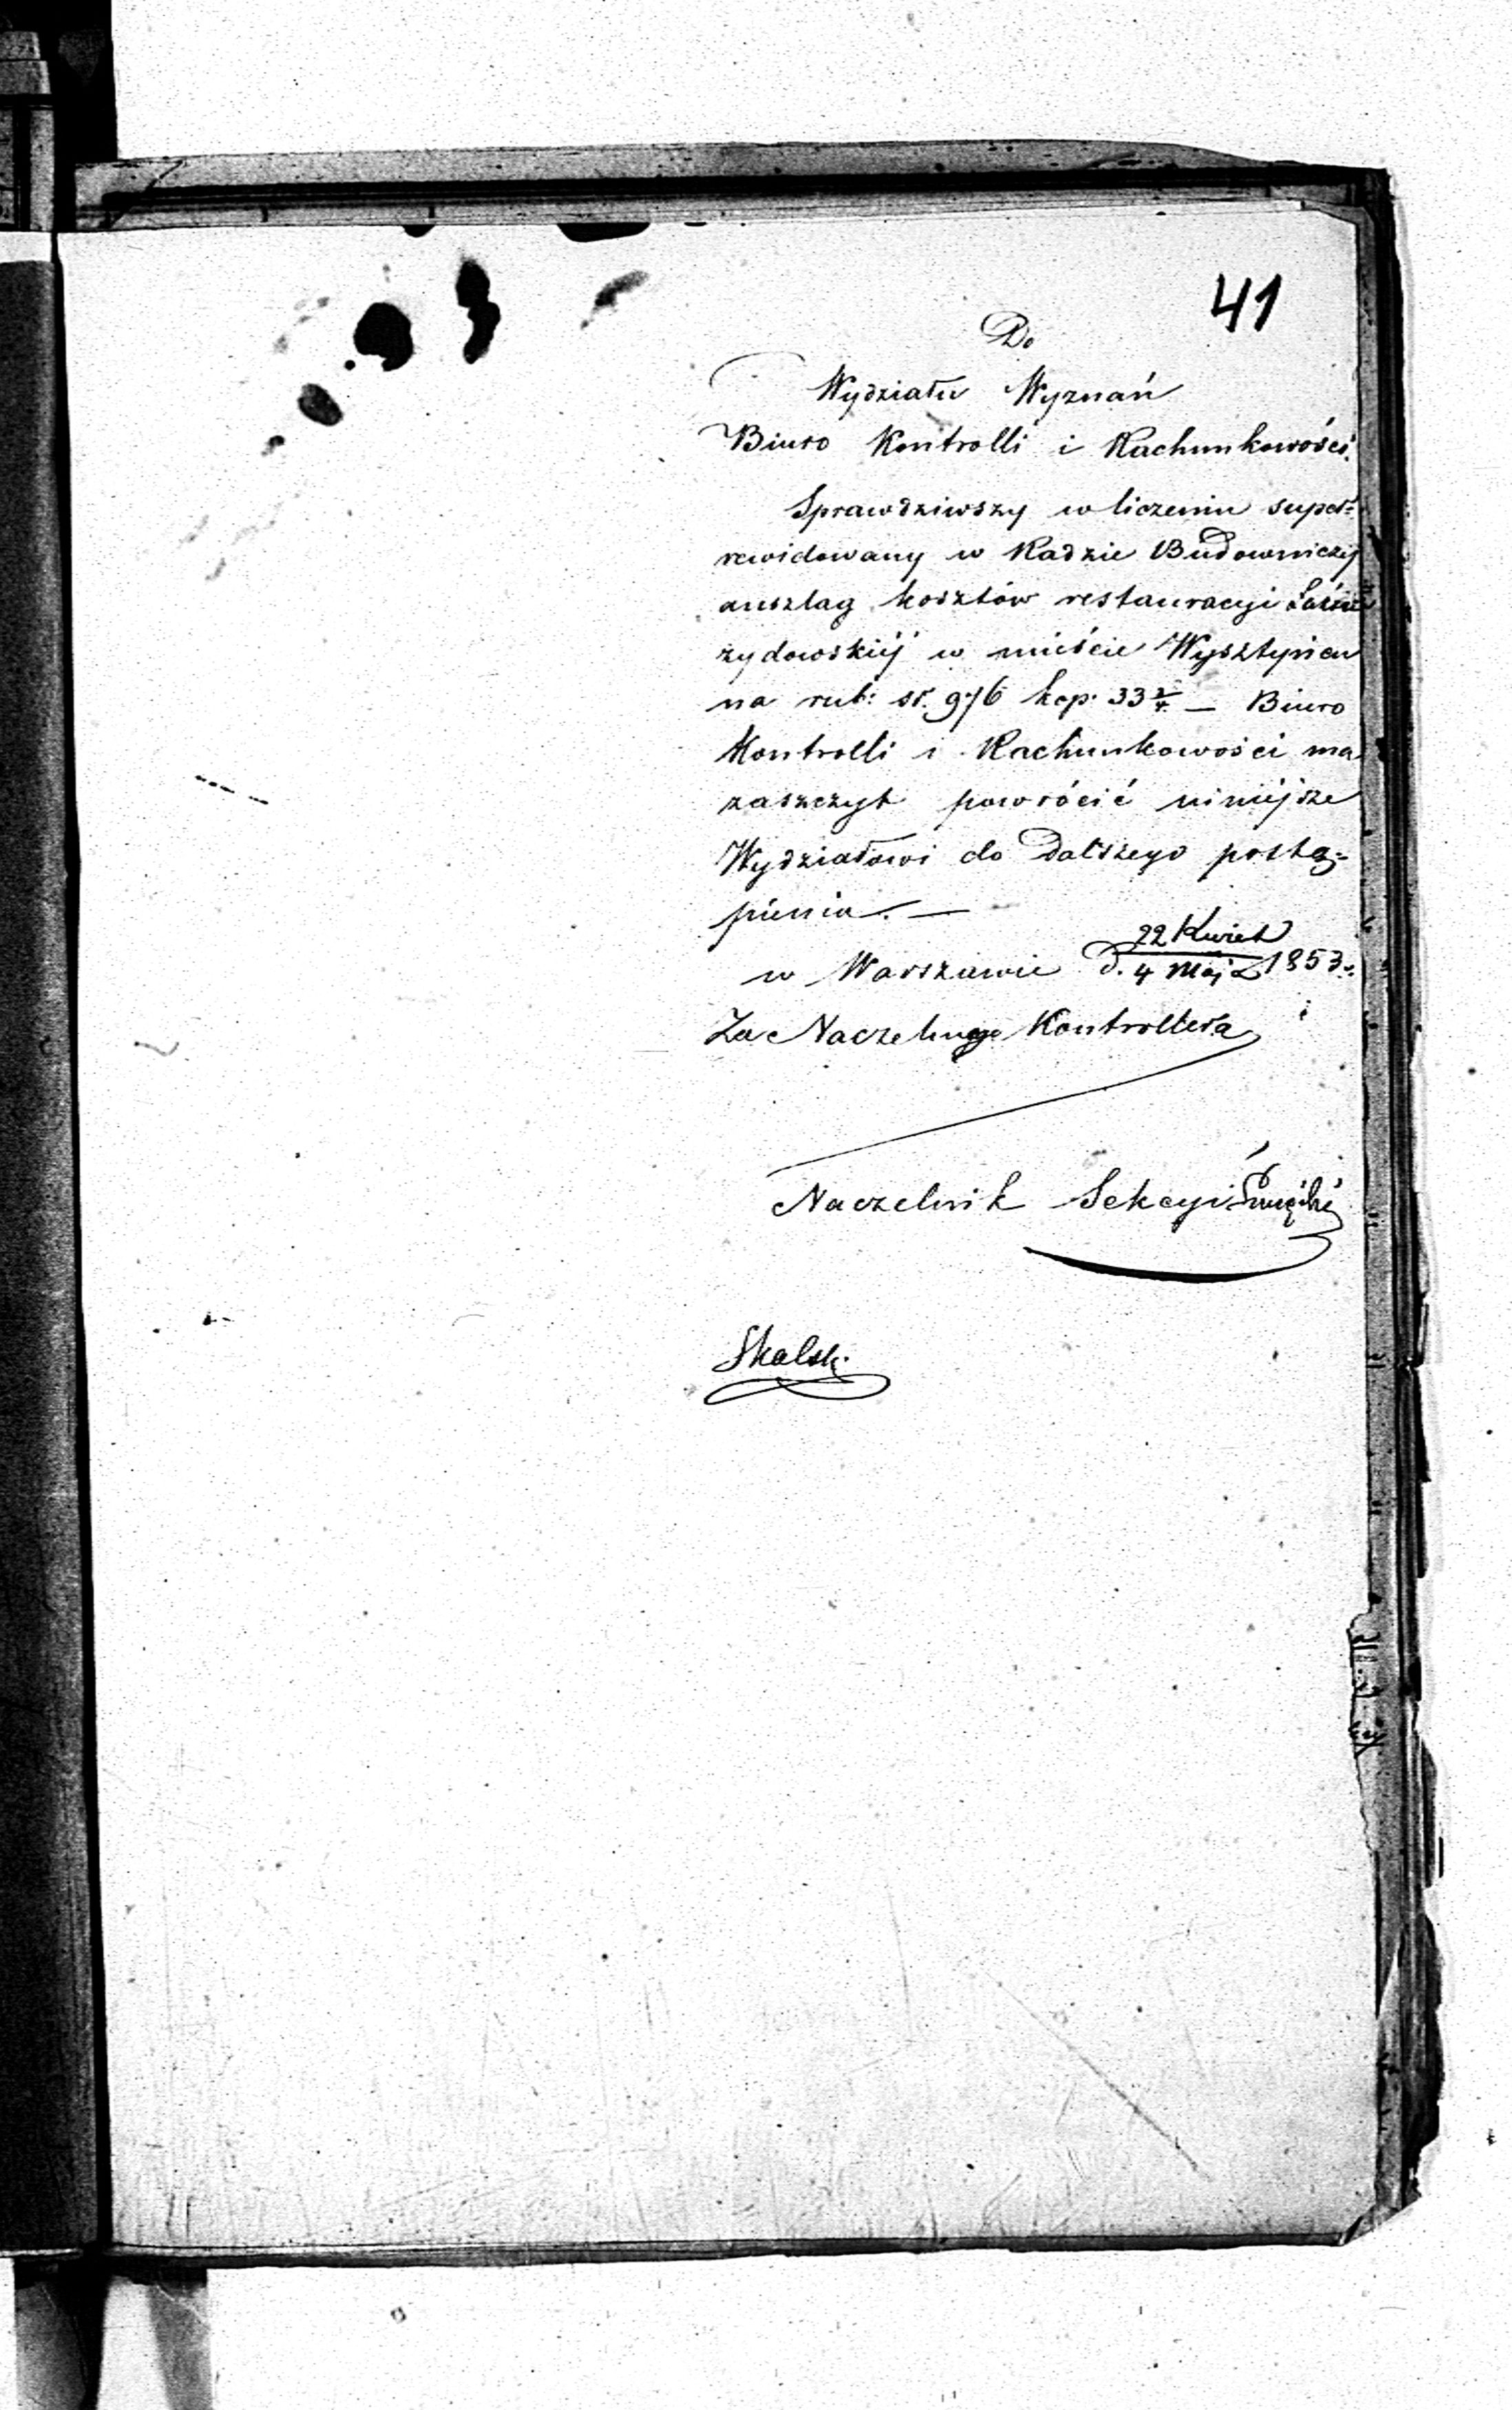 41
Do
Wydziału Wyznań
Biuro Kontrolli i Rachunkowości.
Sprawdziwszy w liczeniu super=
rewidowany w Radzie Budowniczéj
anszlag kosztów restauracyi Łaźni
żydowskiéj w mieście Wysztyńcu
na rub: sr. 976 kop. 33 — Biuro
Kontrolli i Rachunkowości ma
zaszczyt powrócić niniéjsze
Wydziałowi do dalszego postą=
pienia. —
w Warszawie d. 22 Kwiet / 4 Maja 1853 r.
Za Naczelnego Kontrollera
Naczelnik Sekcyi
Skalski